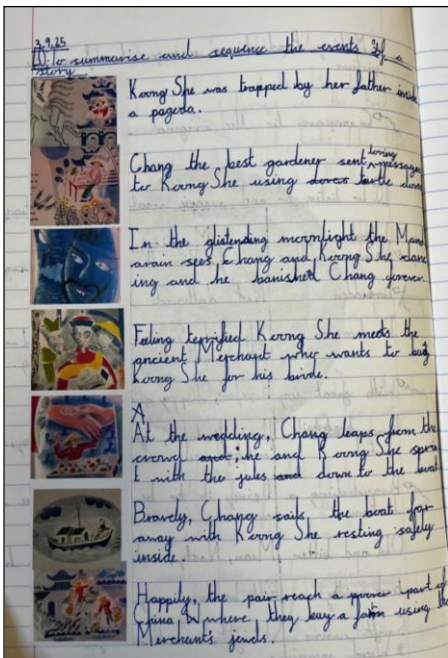 3.9.25
LO: To summarise and sequence the events of a
story
Koong She was trapped by her father inside
a pagoda.
Chang the best gardener sent loving messages
to Koong She using turtle doves
In the glistending moonlight the Mand
arain sees Chang and Koong She danc
ing and he banished Chang forever.
Feeling terrified Koong She meets the
ancient Merchant who wants to buy
Koong She for his bride.
A
At the wedding, Chang leaps from the
crowd and, he and Koong She sprin
t with the jules and down to the boat
Bravely, Chang sails the boat far
away with Koong She resting safely
inside.
Happily, the pair reach a poorer part of
China where they buy a farm using the
Merchant's jewels.